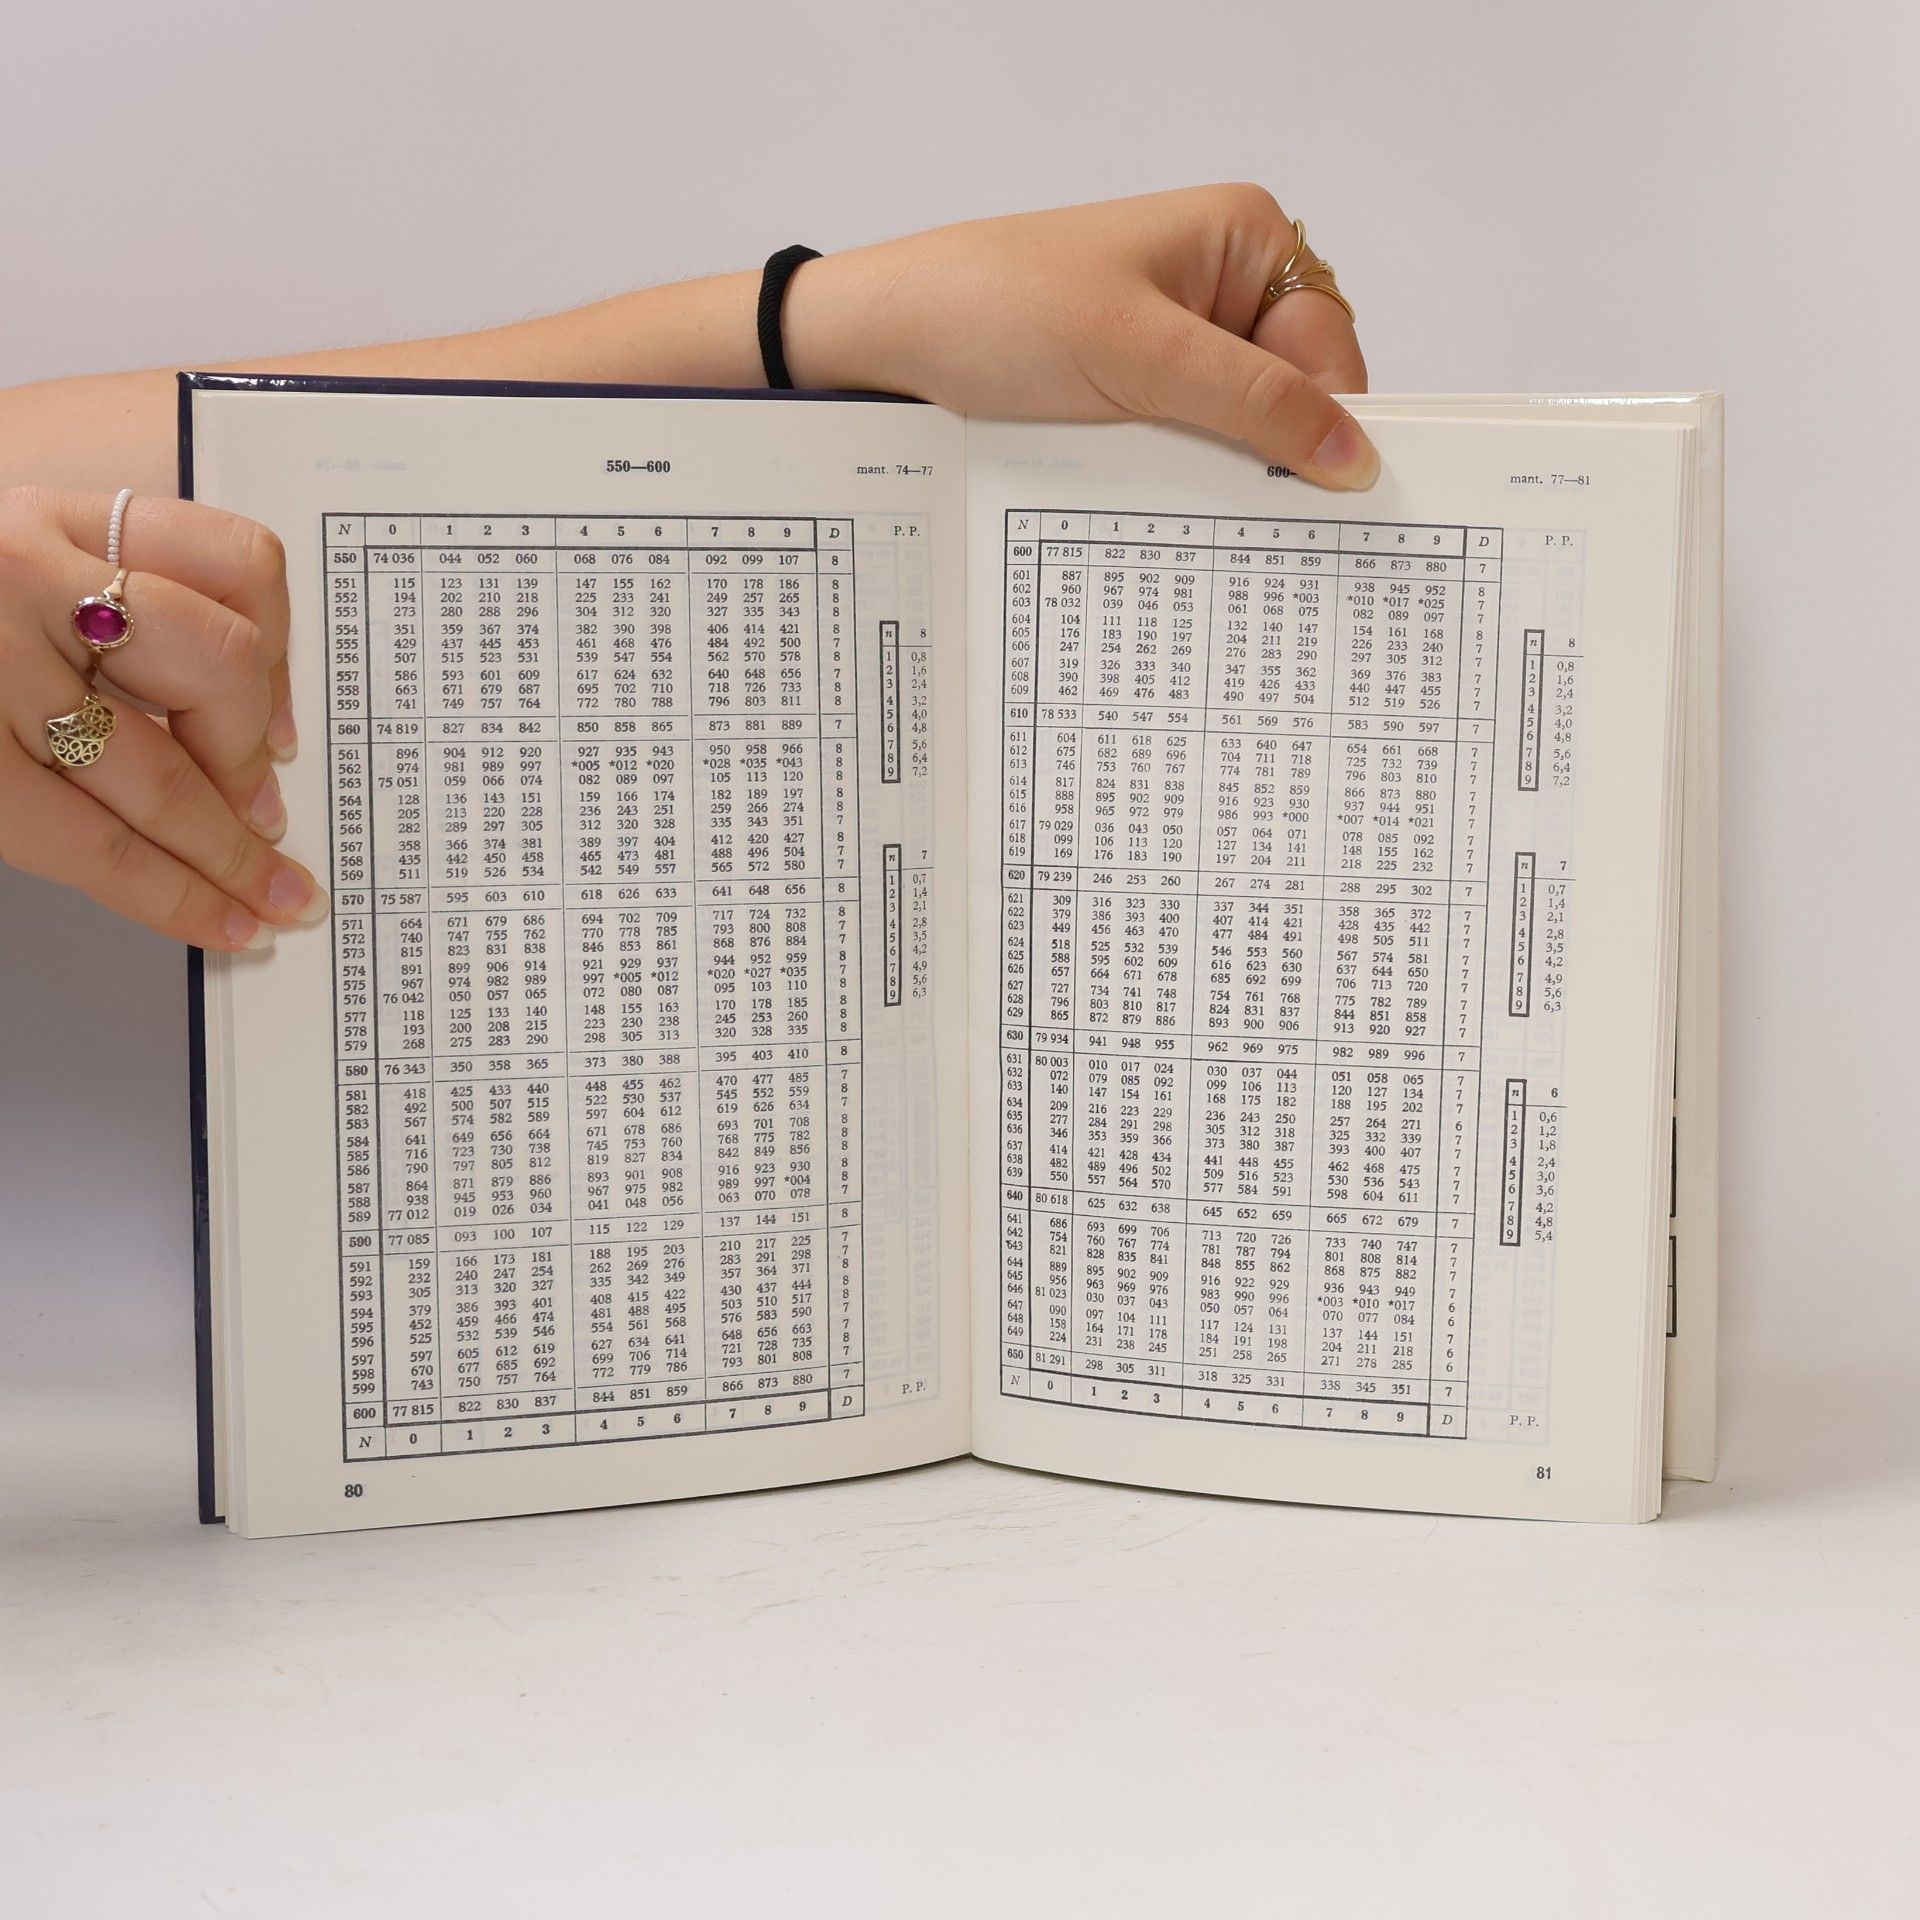 550—600 mant. 74—77
N 0 1 2 3 4 5 6 7 8 9 D P. P.
550 74 036 044 052 060 068 076 084 092 099 107 8
551 115 123 131 139 147 155 162 170 178 186 8
552 194 202 210 218 225 233 241 249 257 265 8
553 273 280 288 296 304 312 320 327 335 343 8
554 351 359 367 374 382 390 398 406 414 421 8
555 429 437 445 453 461 468 476 484 492 500 7
556 507 515 523 531 539 547 554 562 570 578 8
557 586 593 601 609 617 624 632 640 648 656 7
558 663 671 679 687 695 702 710 718 726 733 8
559 741 749 757 764 772 780 788 796 803 811 8
560 74 819 827 834 842 850 858 865 873 881 889 7
561 896 904 912 920 927 935 943 950 958 966 8
562 974 981 989 997 *005 *012 *020 *028 *035 *043 8
563 75 051 059 066 074 082 089 097 105 113 120 8
564 128 136 143 151 159 166 174 182 189 197 8
565 205 213 220 228 236 243 251 259 266 274 8
566 282 289 297 305 312 320 328 335 343 351 7
567 358 366 374 381 389 397 404 412 420 427 8
568 435 442 450 458 465 473 481 488 496 504 7
569 511 519 526 534 542 549 557 565 572 580 7
570 75 587 595 603 610 618 626 633 641 648 656 8
571 664 671 679 686 694 702 709 717 724 732 8
572 740 747 755 762 770 778 785 793 800 808 7
573 815 823 831 838 846 853 861 868 876 884 7
574 891 899 906 914 921 929 937 944 952 959 8
575 967 974 982 989 997 *005 *012 *020 *027 *035 7
576 76 042 050 057 065 072 080 087 095 103 110 8
577 118 125 133 140 148 155 163 170 178 185 8
578 193 200 208 215 223 230 238 245 253 260 8
579 268 275 283 290 298 305 313 320 328 335 8
580 76 343 350 358 365 373 380 388 395 403 410 8
581 418 425 433 440 448 455 462 470 477 485 7
582 492 500 507 515 522 530 537 545 552 559 8
583 567 574 582 589 597 604 612 619 626 634 7
584 641 649 656 664 671 678 686 693 701 708 8
585 716 723 730 738 745 753 760 768 775 782 8
586 790 797 805 812 819 827 834 842 849 856 8
587 864 871 879 886 893 901 908 916 923 930 8
588 938 945 953 960 967 975 982 989 997 *004 8
589 77 012 019 026 034 041 048 056 063 070 078 7
590 77 085 093 100 107 115 122 129 137 144 151 8
591 159 166 173 181 188 195 203 210 217 225 7
592 232 240 247 254 262 269 276 283 291 298 7
593 305 313 320 327 335 342 349 357 364 371 8
594 379 386 393 401 408 415 422 430 437 444 8
595 452 459 466 474 481 488 495 503 510 517 8
596 525 532 539 546 554 561 568 576 583 590 7
597 597 605 612 619 627 634 641 648 656 663 7
598 670 677 685 692 699 706 714 721 728 735 8
599 743 750 757 764 772 779 786 793 801 808 7
600 77 815 822 830 837 844 851 859 866 873 880 7
N 0 1 2 3 4 5 6 7 8 9 D P. P.
n 8
1 0,8
2 1,6
3 2,4
4 3,2
5 4,0
6 4,8
7 5,6
8 6,4
9 7,2
n 7
1 0,7
2 1,4
3 2,1
4 2,8
5 3,5
6 4,2
7 4,9
8 5,6
9 6,3
80
600— mant. 77—81
N 0 1 2 3 4 5 6 7 8 9 D P. P.
600 77 815 822 830 837 844 851 859 866 873 880 7
601 887 895 902 909 916 924 931 938 945 952 8
602 960 967 974 981 988 996 *003 *010 *017 *025 7
603 78 032 039 046 053 061 068 075 082 089 097 7
604 104 111 118 125 132 140 147 154 161 168 8
605 176 183 190 197 204 211 219 226 233 240 7
606 247 254 262 269 276 283 290 297 305 312 7
607 319 326 333 340 347 355 362 369 376 383 7
608 390 398 405 412 419 426 433 440 447 455 7
609 462 469 476 483 490 497 504 512 519 526 7
610 78 533 540 547 554 561 569 576 583 590 597 7
611 604 611 618 625 633 640 647 654 661 668 7
612 675 682 689 696 704 711 718 725 732 739 7
613 746 753 760 767 774 781 789 796 803 810 7
614 817 824 831 838 845 852 859 866 873 880 7
615 888 895 902 909 916 923 930 937 944 951 7
616 958 965 972 979 986 993 *000 *007 *014 *021 7
617 79 029 036 043 050 057 064 071 078 085 092 7
618 099 106 113 120 127 134 141 148 155 162 7
619 169 176 183 190 197 204 211 218 225 232 7
620 79 239 246 253 260 267 274 281 288 295 302 7
621 309 316 323 330 337 344 351 358 365 372 7
622 379 386 393 400 407 414 421 428 435 442 7
623 449 456 463 470 477 484 491 498 505 511 7
624 518 525 532 539 546 553 560 567 574 581 7
625 588 595 602 609 616 623 630 637 644 650 7
626 657 664 671 678 685 692 699 706 713 720 7
627 727 734 741 748 754 761 768 775 782 789 7
628 796 803 810 817 824 831 837 844 851 858 7
629 865 872 879 886 893 900 906 913 920 927 7
630 79 934 941 948 955 962 969 975 982 989 996 7
631 80 003 010 017 024 030 037 044 051 058 065 7
632 072 079 085 092 099 106 113 120 127 134 7
633 140 147 154 161 168 175 182 188 195 202 7
634 209 216 223 229 236 243 250 257 264 271 6
635 277 284 291 298 305 312 318 325 332 339 7
636 346 353 359 366 373 380 387 393 400 407 7
637 414 421 428 434 441 448 455 462 468 475 7
638 482 489 496 502 509 516 523 530 536 543 7
639 550 557 564 570 577 584 591 598 604 611 7
640 80 618 625 632 638 645 652 659 665 672 679 7
641 686 693 699 706 713 720 726 733 740 747 7
642 754 760 767 774 781 787 794 801 808 814 7
643 821 828 835 841 848 855 862 868 875 882 7
644 889 895 902 909 916 922 929 936 943 949 7
645 956 963 969 976 983 990 996 *003 *010 *017 6
646 81 023 030 037 043 050 057 064 070 077 084 6
647 090 097 104 111 117 124 131 137 144 151 7
648 158 164 171 178 184 191 198 204 211 218 6
649 224 231 238 245 251 258 265 271 278 285 6
650 81 291 298 305 311 318 325 331 338 345 351 7
N 0 1 2 3 4 5 6 7 8 9 D P. P.
n 8
1 0,8
2 1,6
3 2,4
4 3,2
5 4,0
6 4,8
7 5,6
8 6,4
9 7,2
n 7
1 0,7
2 1,4
3 2,1
4 2,8
5 3,5
6 4,2
7 4,9
8 5,6
9 6,3
n 6
1 0,6
2 1,2
3 1,8
4 2,4
5 3,0
6 3,6
7 4,2
8 4,8
9 5,4
81